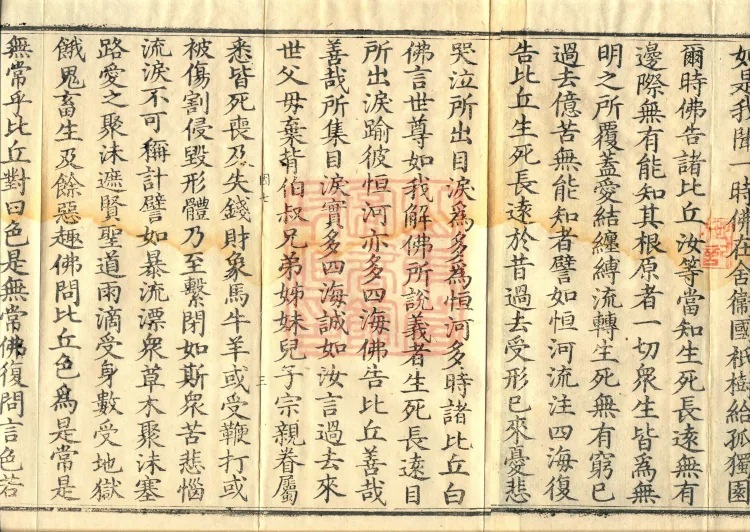 如是我聞一時佛在舍衛國祇樹給孤獨園
爾時佛告諸比丘汝等當知生死長遠無有
邊際無有能知其根原者一切衆生皆爲無
明之所覆蓋愛結纏縛流轉生死無有窮已
過去億苦無能知者譬如恒河流注四海復
告比丘生死長遠於昔過去受形已來憂悲
哭泣所出目淚爲多爲恒河多時諸比丘白
佛言世尊如我解佛所說義者生死長遠目
所出淚踰彼恒河亦多四海佛告比丘善哉
善哉所集目淚實多四海誠如汝言過去來
世父母棄背伯叔兄弟姊妹兒子宗親眷屬
三
悉皆死喪及失錢財象馬牛羊或受鞭打或
被傷割侵毀形體乃至繫閉如斯衆苦悲惱
流淚不可稱計譬如暴流漂衆草木聚沫塞
路愛之聚沫遮賢聖道雨滴受身數受地獄
餓鬼畜生及餘惡趣佛問比丘色爲是常是
無常乎比丘對曰色是無常佛復問言色若